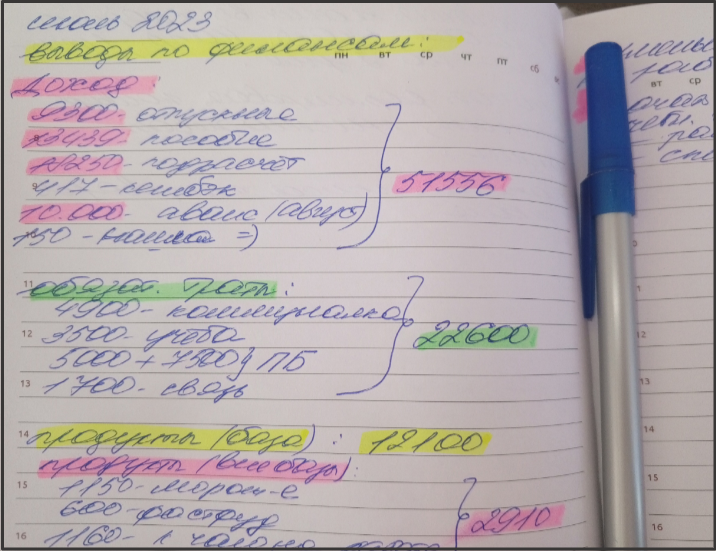 июль 2023
выводы по финансам:
пн вт ср чт пт сб
Доход
9300- отпускные
13439- пособие
18250- подрасчёт
417- кешбэк
10.000- аванс (август)
150 - нашла =)
51556
11
обязат. траты:
4900- коммуналка
12 3500- учёба
5000 + 7500 } ПБ
13 1700- связь
22600
14 продукты (база): 12100
продукт (вне базы):
15 1150- морож-е
600- фастфуд
16 1160- к
2910
вт ср
11
12
13
14
15
16